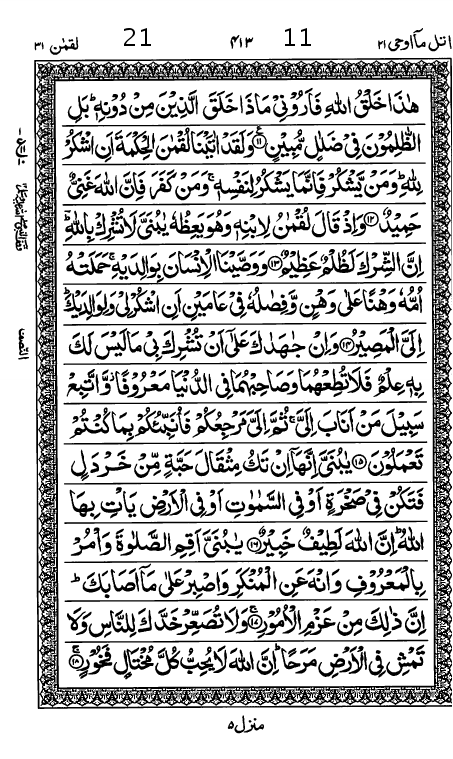 اتل مآ اوحی ۲۱ 11 ۴۱۳ 21 لقمٰن ۳۱
هٰذَا خَلْقُ اللّٰهِ فَاَرُوْنِیْ مَاذَا خَلَقَ الَّذِیْنَ مِنْ دُوْنِهٖ ؕ بَلِ
الظّٰلِمُوْنَ فِیْ ضَلٰلٍ مُّبِیْنٍ ﴿۱۱﴾ وَلَقَدْ اٰتَیْنَا لُقْمٰنَ الْحِكْمَةَ اَنِ اشْكُرْ
لِلّٰهِ ؕ وَمَنْ یَّشْكُرْ فَاِنَّمَا یَشْكُرُ لِنَفْسِهٖ ۚ وَمَنْ كَفَرَ فَاِنَّ اللّٰهَ غَنِیٌّ
حَمِیْدٌ ﴿۱۲﴾ وَاِذْ قَالَ لُقْمٰنُ لِابْنِهٖ وَهُوَ یَعِظُهٗ یٰبُنَیَّ لَا تُشْرِكْ بِاللّٰهِ ؕ
اِنَّ الشِّرْكَ لَظُلْمٌ عَظِیْمٌ ﴿۱۳﴾ وَوَصَّیْنَا الْاِنْسَانَ بِوَالِدَیْهِ ۚ حَمَلَتْهُ
اُمُّهٗ وَهْنًا عَلٰی وَهْنٍ وَّفِصٰلُهٗ فِیْ عَامَیْنِ اَنِ اشْكُرْ لِیْ وَلِوَالِدَیْكَ ؕ
اِلَیَّ الْمَصِیْرُ ﴿۱۴﴾ وَاِنْ جَاهَدٰكَ عَلٰۤی اَنْ تُشْرِكَ بِیْ مَا لَیْسَ لَكَ
بِهٖ عِلْمٌ فَلَا تُطِعْهُمَا وَصَاحِبْهُمَا فِی الدُّنْیَا مَعْرُوْفًا ؗ وَّاتَّبِعْ
سَبِیْلَ مَنْ اَنَابَ اِلَیَّ ۚ ثُمَّ اِلَیَّ مَرْجِعُكُمْ فَاُنَبِّئُكُمْ بِمَا كُنْتُمْ
تَعْمَلُوْنَ ﴿۱۵﴾ یٰبُنَیَّ اِنَّهَاۤ اِنْ تَكُ مِثْقَالَ حَبَّةٍ مِّنْ خَرْدَلٍ
فَتَكُنْ فِیْ صَخْرَةٍ اَوْ فِی السَّمٰوٰتِ اَوْ فِی الْاَرْضِ یَاْتِ بِهَا
اللّٰهُ ؕ اِنَّ اللّٰهَ لَطِیْفٌ خَبِیْرٌ ﴿۱۶﴾ یٰبُنَیَّ اَقِمِ الصَّلٰوةَ وَاْمُرْ
بِالْمَعْرُوْفِ وَانْهَ عَنِ الْمُنْكَرِ وَاصْبِرْ عَلٰی مَاۤ اَصَابَكَ ؕ
اِنَّ ذٰلِكَ مِنْ عَزْمِ الْاُمُوْرِ ﴿۱۷﴾ وَلَا تُصَعِّرْ خَدَّكَ لِلنَّاسِ وَلَا
تَمْشِ فِی الْاَرْضِ مَرَحًا ؕ اِنَّ اللّٰهَ لَا یُحِبُّ كُلَّ مُخْتَالٍ فَخُوْرٍ ﴿۱۸﴾
منزل ۵